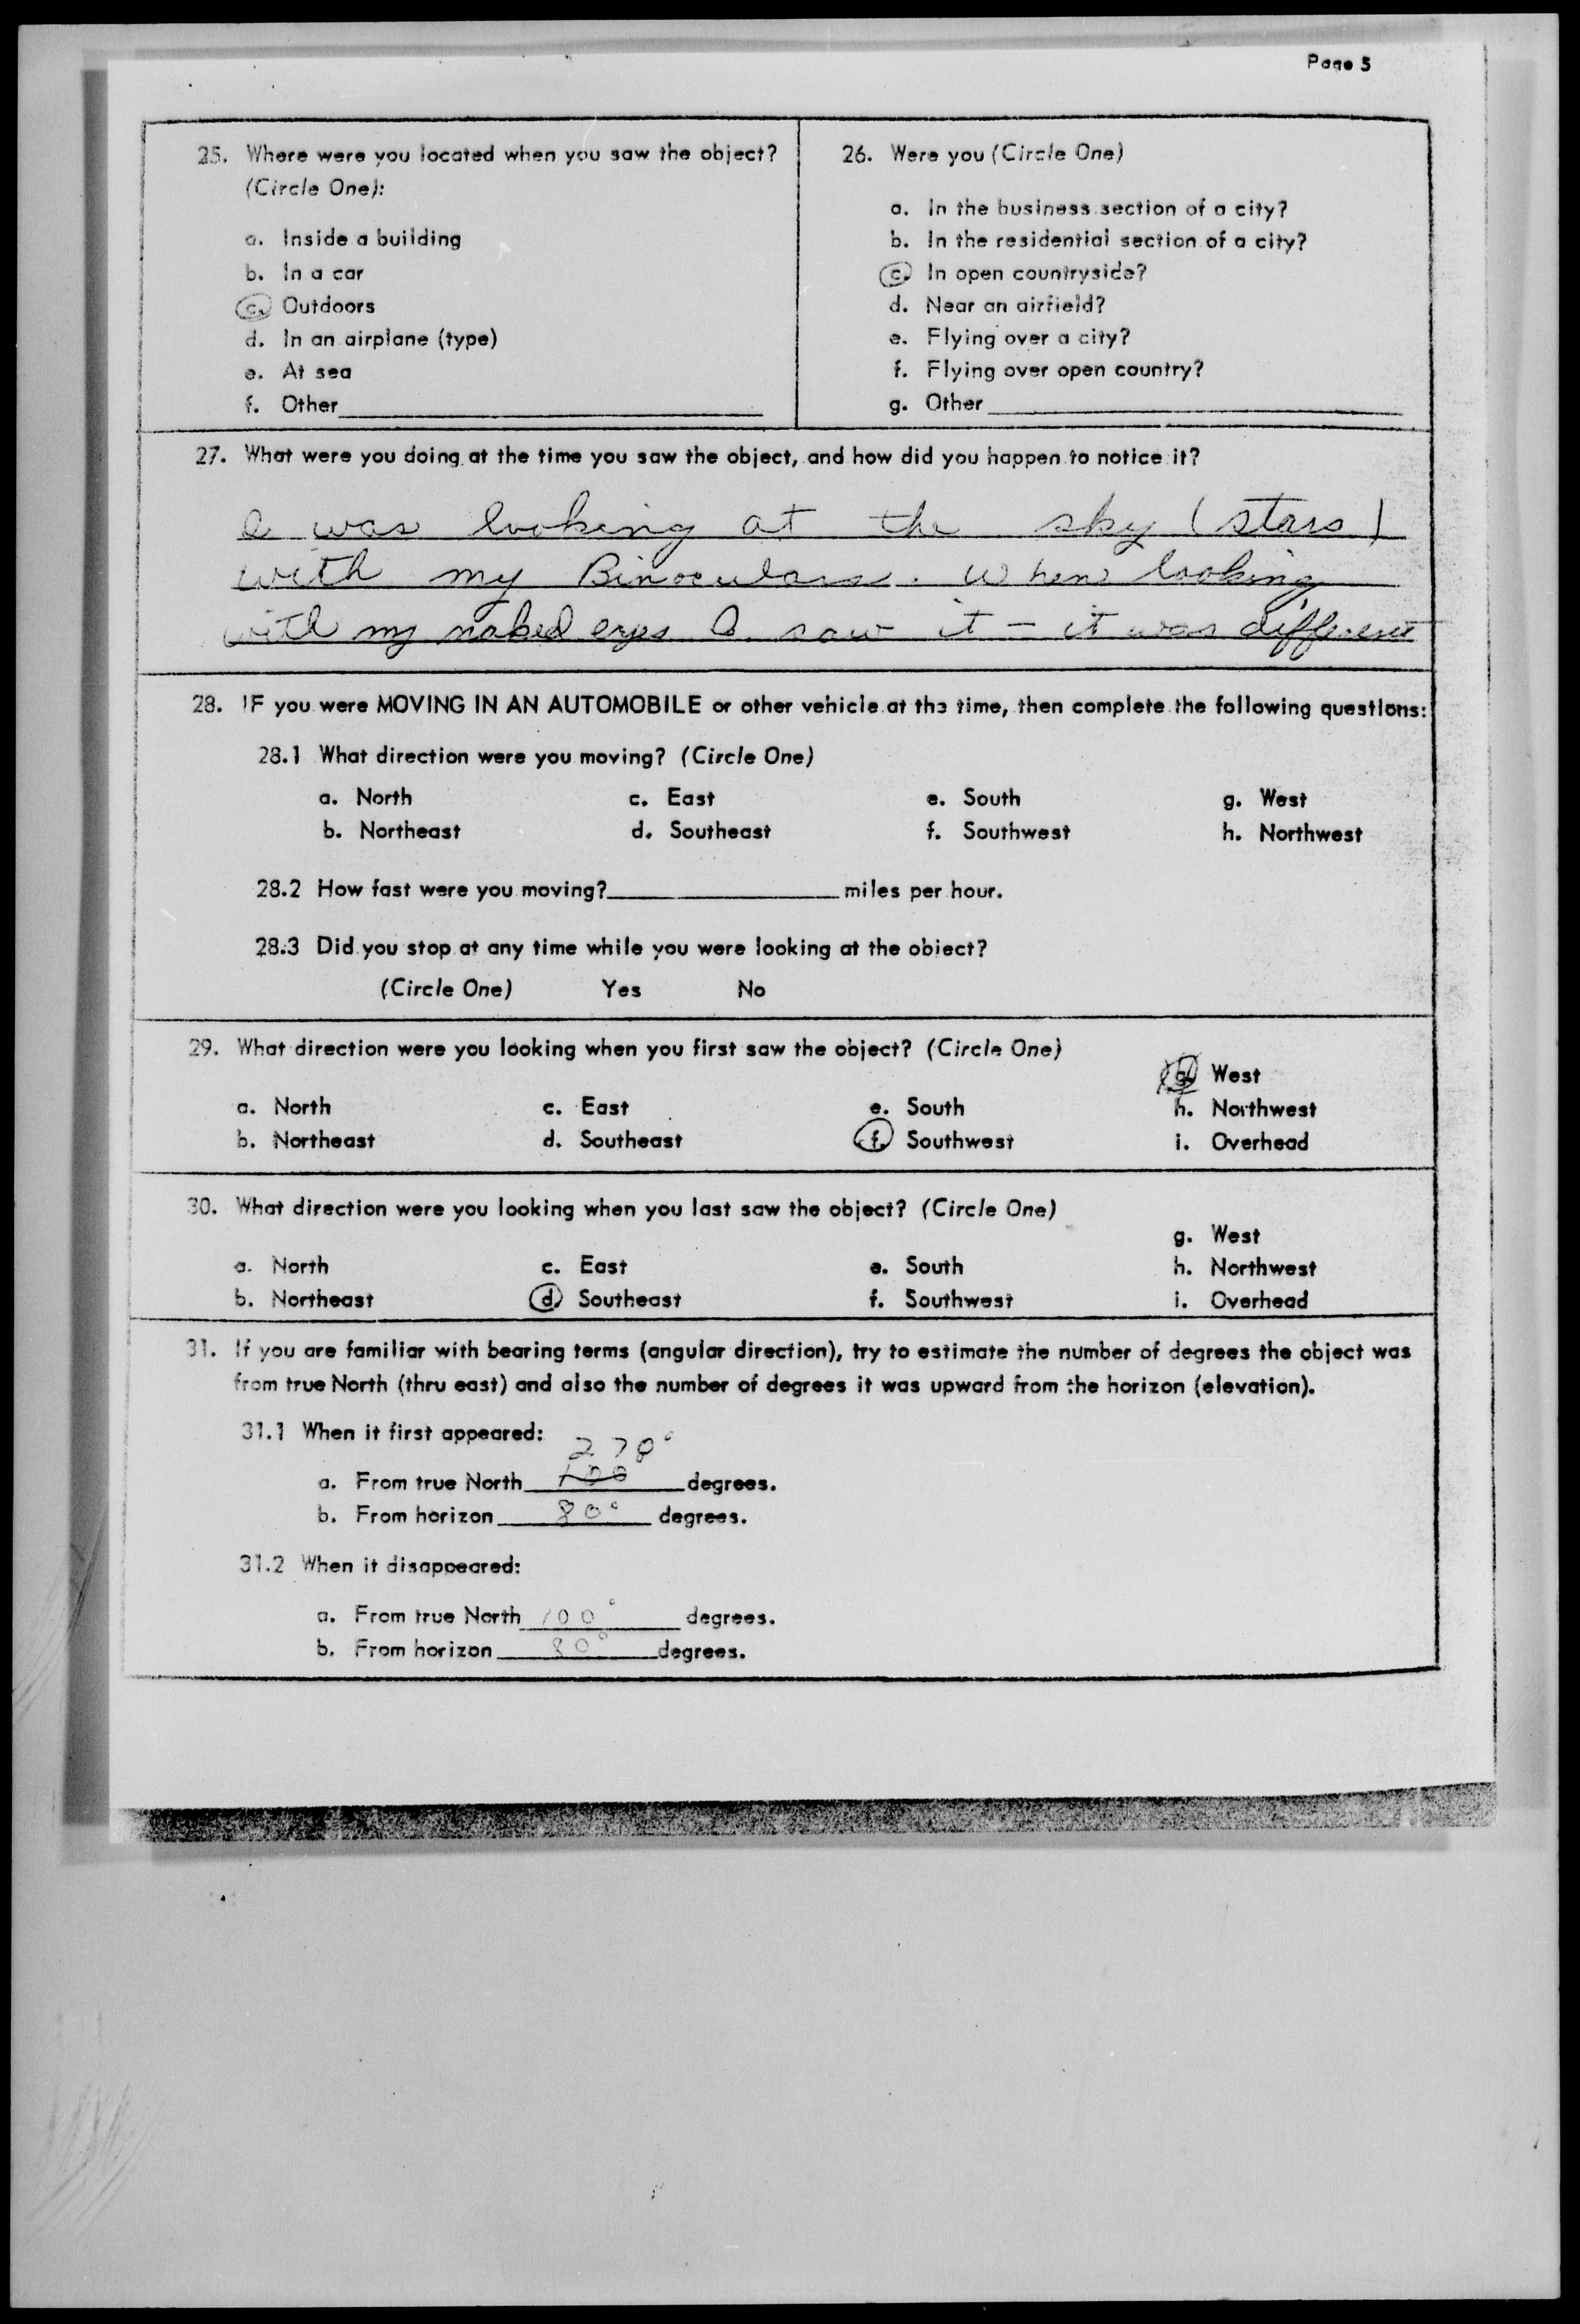 Page 5
25. Where were you located when you saw the object?
(Circle One):
a. Inside a building
b. In a car
c. Outdoors
d. In an airplane (type)
e. At sea
f. Other
26. Were you (Circle One)
a. In the business section of a city?
b. In the residential section of a city?
c. In open countryside?
d. Near an airfield?
e. Flying over a city?
f. Flying over open country?
g. Other
27. What were you doing at the time you saw the object, and how did you happen to notice it?
I was looking at the sky (stars)
with my Binoculars. When looking
with my naked eyes I saw it - it was different
28. IF you were MOVING IN AN AUTOMOBILE or other vehicle at the time, then complete the following questions:
28.1 What direction were you moving? (Circle One)
a. North c. East e. South g. West
b. Northeast d. Southeast f. Southwest h. Northwest
28.2 How fast were you moving? miles per hour.
28.3 Did you stop at any time while you were looking at the object?
(Circle One) Yes No
29. What direction were you looking when you first saw the object? (Circle One)
g. West
a. North c. East e. South h. Northwest
b. Northeast d. Southeast f. Southwest i. Overhead
30. What direction were you looking when you last saw the object? (Circle One)
g. West
a. North c. East e. South h. Northwest
b. Northeast d. Southeast f. Southwest i. Overhead
31. If you are familiar with bearing terms (angular direction), try to estimate the number of degrees the object was
from true North (thru east) and also the number of degrees it was upward from the horizon (elevation).
31.1 When it first appeared:
270°
a. From true North 100 degrees.
b. From horizon 80° degrees.
31.2 When it disappeared:
a. From true North 100° degrees.
b. From horizon 80° degrees.